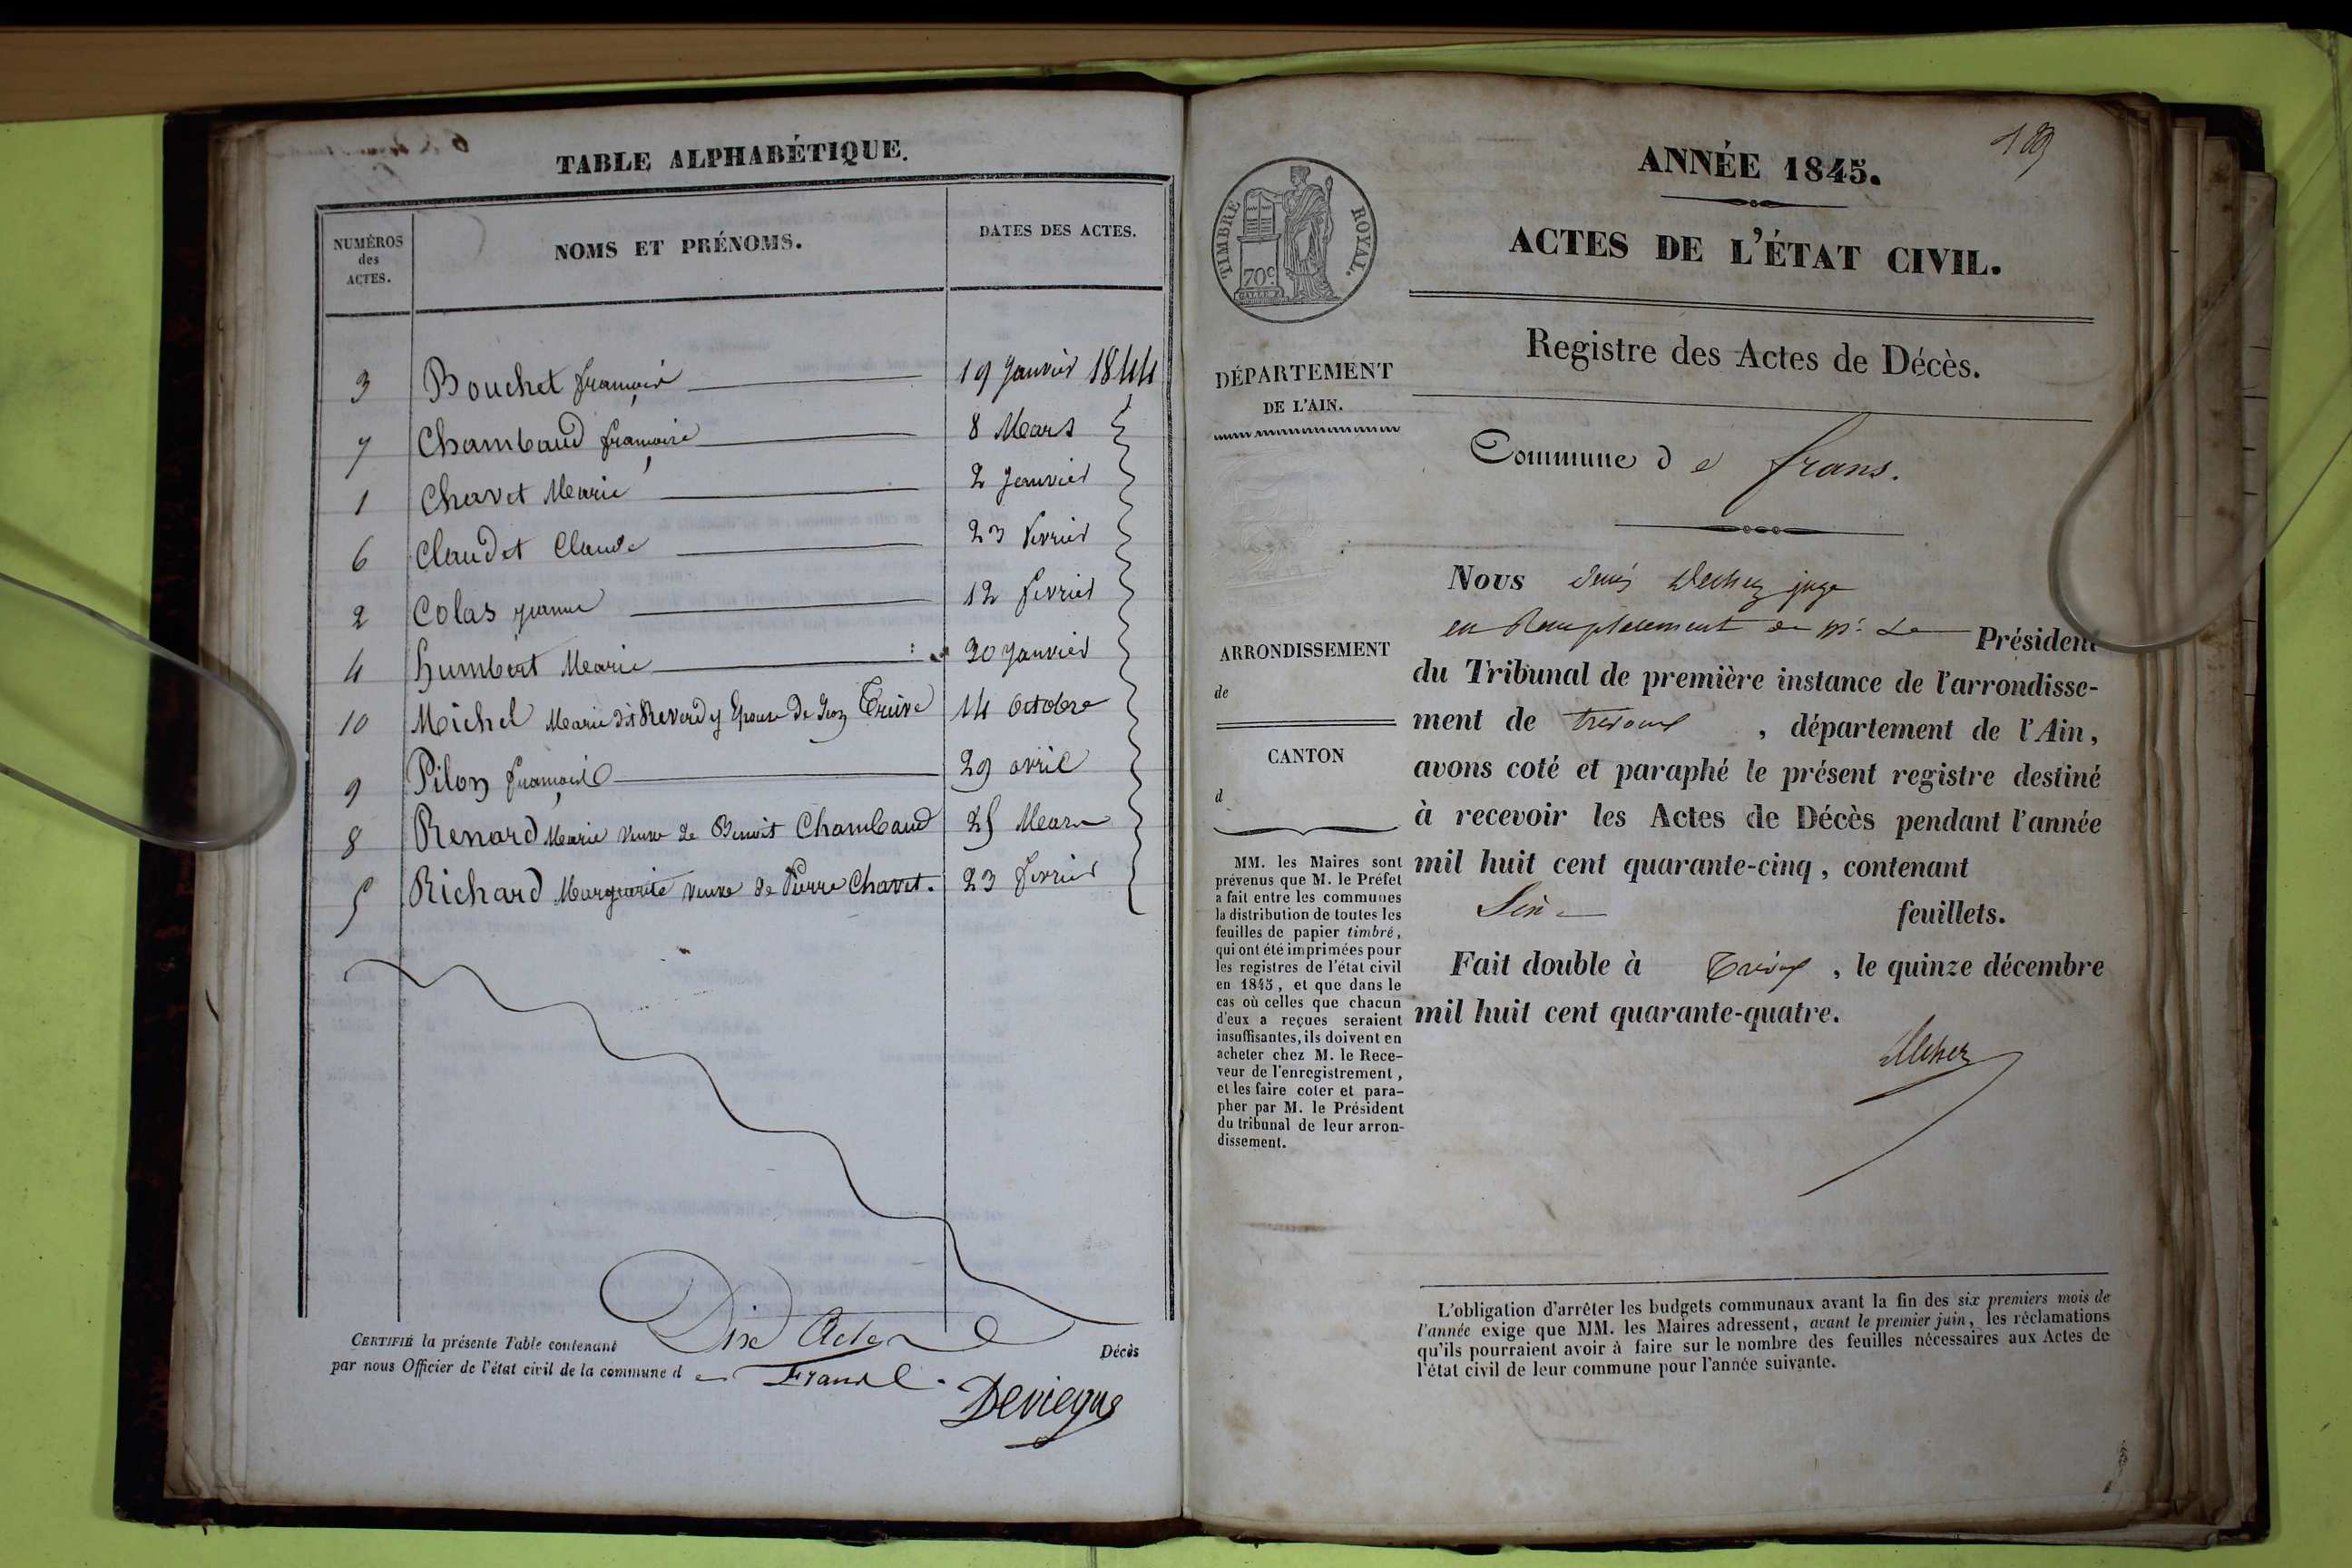 TABLE ALPHABÉTIQUE.
NUMÉROS
des
ACTES.
NOMS ET PRÉNOMS.
DATES DES ACTES.
3 Bouchet françois 19 Janvier 1844
7 Chambaud françoise 8 Mars
1 Chavet Marie 2 Janvier
6 Claudet Claude 23 fevrier
2 Colas jeanne 12 fevrier
4 humbert Marie 20 Janvier
10 Michel Marie dit Reverdy Epouse de Trève 14 Octobre
9 Pilon 29 avril
8 Renard Marie veuve de Benoit Chambaud 25 Mars
5 Richard Marguerite veuve de Pierre Chavet. 23 fevrier
CERTIFIÉ la présente Table contenant Dix Actes Décès
par nous Officier de l'état civil de la commune d e
Deviegue
ANNÉE 1845.
ACTES DE L'ÉTAT CIVIL.
TIMBRE ROYAL.
70c
Registre des Actes de Décès.
DÉPARTEMENT
DE L'AIN.
Commune d e frans.
ARRONDISSEMENT
de
CANTON
d
Nous juge
en Remplacement de Mr. Le Président
du Tribunal de première instance de l'arrondisse-
ment de trevoux , département de l'Ain,
avons coté et paraphé le présent registre destiné
à recevoir les Actes de Décès pendant l'année
mil huit cent quarante-cinq, contenant
feuillets.
Fait double à , le quinze décembre
mil huit cent quarante-quatre.
MM. les Maires sont
prévenus que M. le Préfet
a fait entre les communes
la distribution de toutes les
feuilles de papier timbré,
qui ont été imprimées pour
les registres de l'état civil
en 1845, et que dans le
cas où celles que chacun
d'eux a reçues seraient
insuffisantes, ils doivent en
acheter chez M. le Rece-
veur de l'enregistrement,
et les faire coter et para-
pher par M. le Président
du tribunal de leur arron-
dissement.
L'obligation d'arrêter les budgets communaux avant la fin des six premiers mois de
l'année exige que MM. les Maires adressent, avant le premier juin, les réclamations
qu'ils pourraient avoir à faire sur le nombre des feuilles nécessaires aux Actes de
l'état civil de leur commune pour l'année suivante.